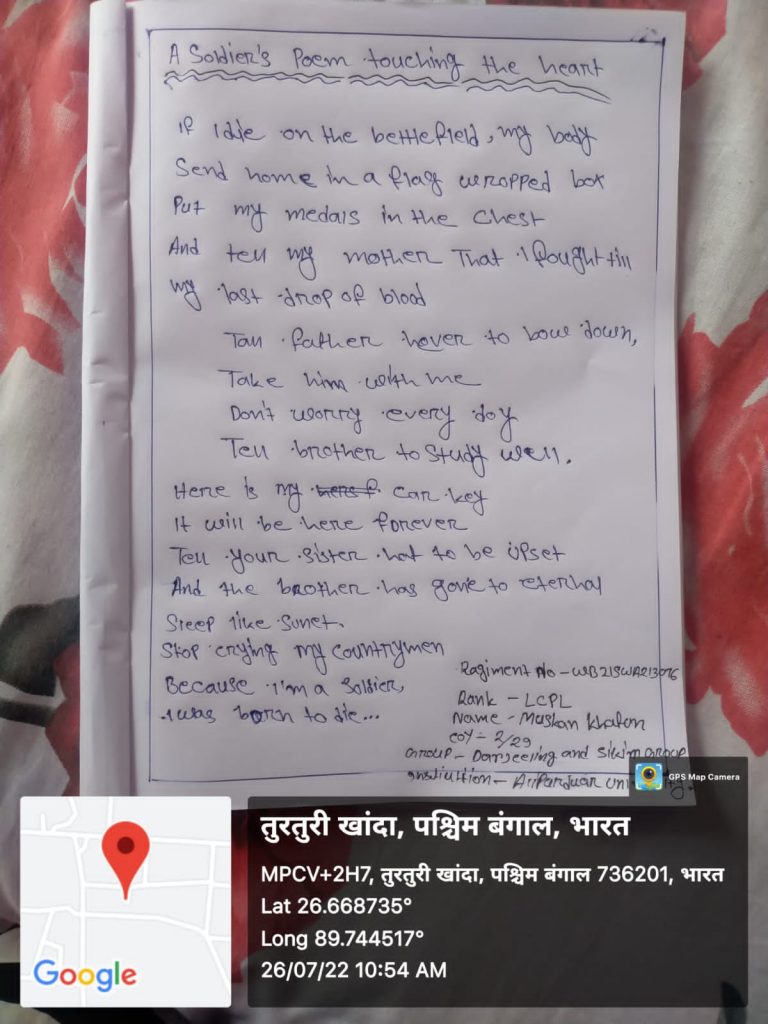 A Soldier's Poem touching the heart
If I die on the bettlefield, my body
Send home in a flag wropped box
Put my medals in the Chest
And tell my mother That I fought till
my last drop of blood
Tall father never to bow down,
Take him with me
Don't worry every day
Tell brother to study well.
Here is my car key
It will be here forever
Tell your sister not to be upset
And the brother has gone to reternal
Sleep like Sunet.
Stop crying my countrymen
Because I'm a soldier,
I was born to die...
Ragiment No - WB21SWA213076
Rank - LCPL
Name - Muskan Khaton
COY = 2/29
Group - Darjeeling and Sikim Group
Institution - Alipurduar Uni
GPS Map Camera
तुरतुरी खांदा, पश्चिम बंगाल, भारत
MPCV+2H7, तुरतुरी खांदा, पश्चिम बंगाल 736201, भारत
Lat 26.668735°
Long 89.744517°
26/07/22 10:54 AM
Google